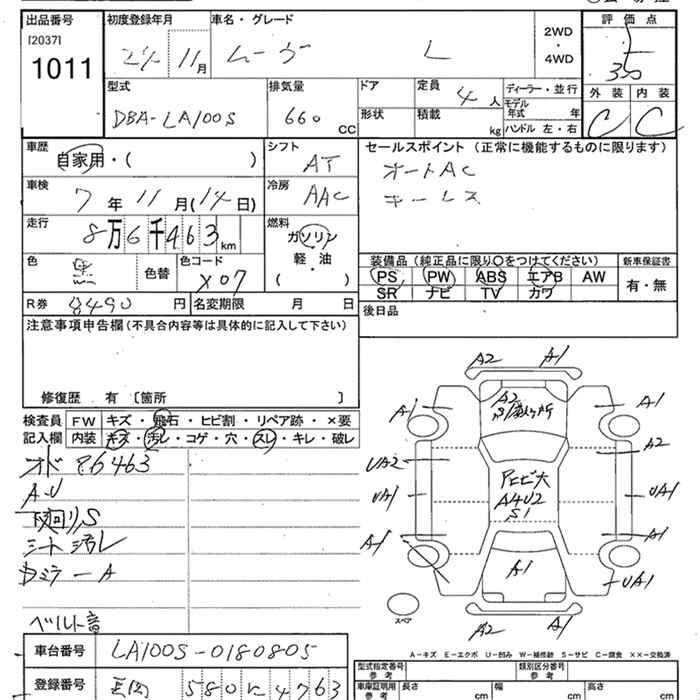 出品番号 初度登録年月 車名・グレード 2WD・4WD 評価点
[2037] 24 11月 ムーヴ L 3.5
1011
型式 排気量 ドア 定員 4人 ディーラー・並行 外装 内装
DBA-LA100S 660 CC 形状 積載 kg モデル年式 年 ハンドル 左・右 C C
車歴 シフト セールスポイント (正常に機能するものに限ります)
自家用・( ) AT オートAC
車検 冷房 キーレス
7年11月(14日) AAC
走行 燃料
8万6千463km ガソリン
軽・油
( )
色 黒 色替 色コード X07
装備品(純正品に限り○をつけてください) 新車保証書
PS PW ABS エアB AW 有・無
SR ナビ TV カワ
R券 8490円 名変期限 月 日 後日品
注意事項申告欄(不具合内容等は具体的に記入して下さい)
修復歴 有 〔箇所 〕
検査員 FW キズ・飛石・ヒビ割・リペア跡・×要
記入欄 内装 キズ・汚レ・コゲ・穴・スレ・キレ・破レ
オド 86463
A・U
下廻りS
シート汚レ
Dミラー A
ベルト音
A2 A1
A2
A1 A1
A2
UA2
UA1 アヒビ大 UA1
A4U2
S1
A1 A1
A1
UA1
スペア
A2 A1
A-キズ E-エクボ U-凹み W-補修跡 S-サビ C-腐食 XX-交換済
車台番号 LA100S-0180805
型式指定番号 参考 類別区分番号 参考
登録番号 580 4763
車庫証明用 参考 長さ cm 幅 cm 高さ cm